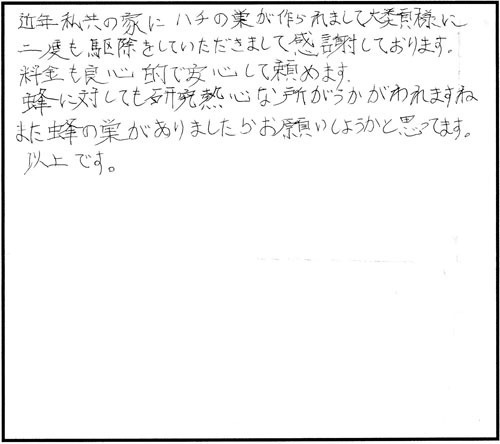 近年私共の家にハチの巣が作られまして大委員様に
二度も駆除をしていただきまして感謝しております。
料金も良心的で安心して頼めます.
蜂に対しても研究熱心な所がうかがわれますね
また蜂の巣がありましたらお願いしようかと思ってます。
以上です。